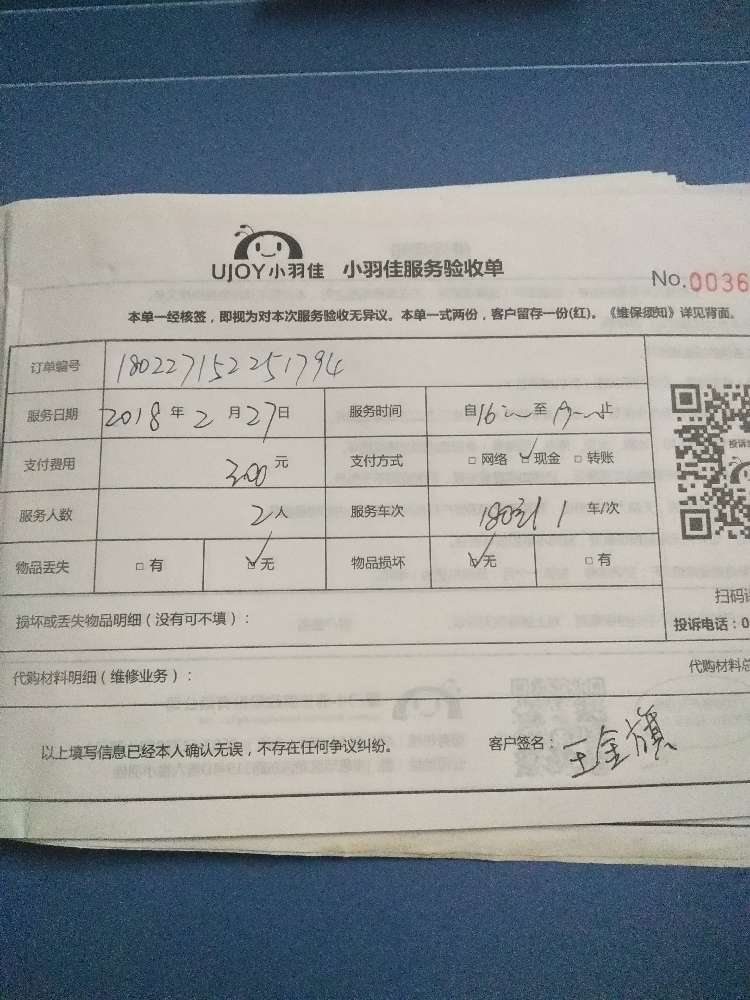 UJOY小羽佳 小羽佳服务验收单
No.0036
本单一经核签，即视为对本次服务验收无异议。本单一式两份，客户留存一份(红)。《维保须知》详见背面。
订单编号 180227152251794
服务日期 2018年2月27日 服务时间 自16 至 止
支付费用 300元 支付方式 □网络 ☑现金 □转账
服务人数 2人 服务车次 1 车/次
物品丢失 □有 ☑无 物品损坏 ☑无 □有
扫码
损坏或丢失物品明细（没有可不填）：
投诉电话：0
代购材料明细（维修业务）： 代购材料总
以上填写信息已经本人确认无误，不存在任何争议纠纷。 客户签名：王金旗